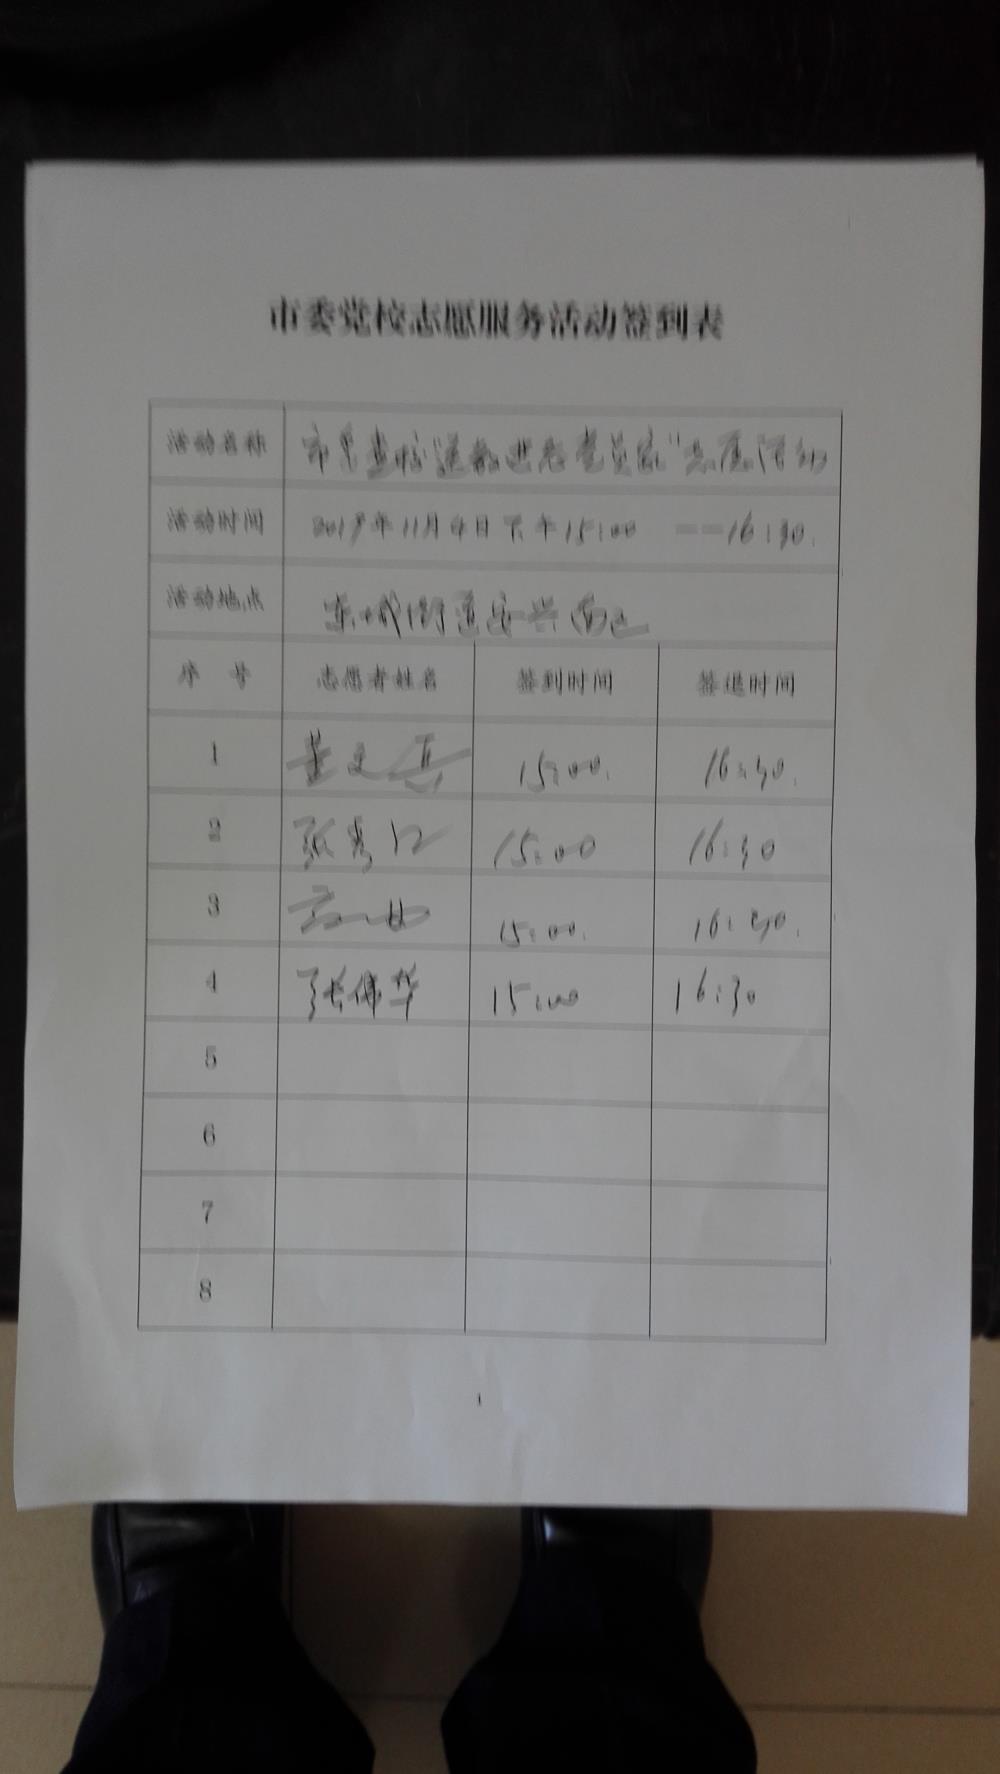 市委党校志愿服务活动签到表
活动名称 市委党校“送教进老党员家”志愿活动
活动时间 2017年11月4日下午15:00 ——16:30.
活动地点 东城街道安兴南区
序 号 志愿者姓名 签到时间 签退时间
1 15:00. 16:30.
2 张秀江 15:00 16:30
3 15:00. 16:30.
4 张伟华 15:00 16:30
5
6
7
8
1